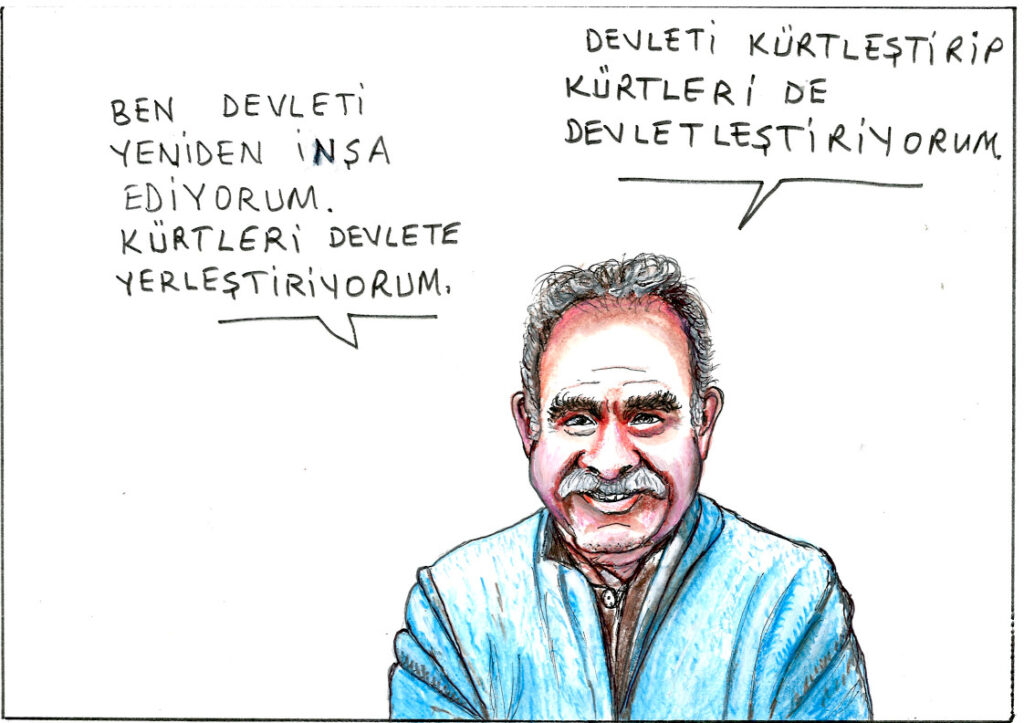 BEN DEVLETİ
YENİDEN İNŞA
EDİYORUM.
KÜRTLERİ DEVLETE
YERLEŞTİRİYORUM.
DEVLETİ KÜRTLEŞTİRİP
KÜRTLERİ DE
DEVLETLEŞTİRİYORUM.